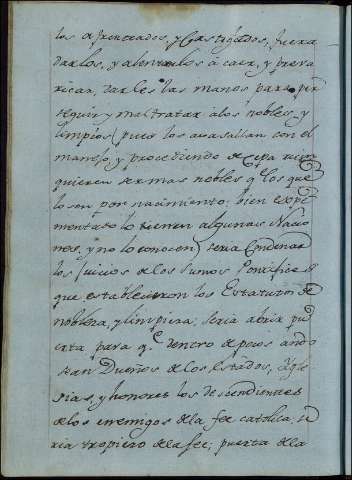 los afrentados, y Castigados, fuera
darlos, y alentarlos à caer, y preva
ricar, darles las manos para per
seguir y maltratar alos nobles, y
limpios (pues los avasallan con el
manejo, y procediendo de Cepa ruin
quieren ser mas nobles q.e los que
lo son por nacimiento: bien expe
mentado lo tienen algunas Nacio
nes, y no lo conocen) seria Condenar
los Juicios de los Sumos Pontifices
que establecieron los Estatutos de
nobleza, y limpieza; seria abrir pu
erta para q.e dentro de pocos años
sean Dueños de los Estados, Ygle
sias, y honores los descendientes
de los enemigos de la fee catolica, se
ria tropiezo de la fee; puerta de la